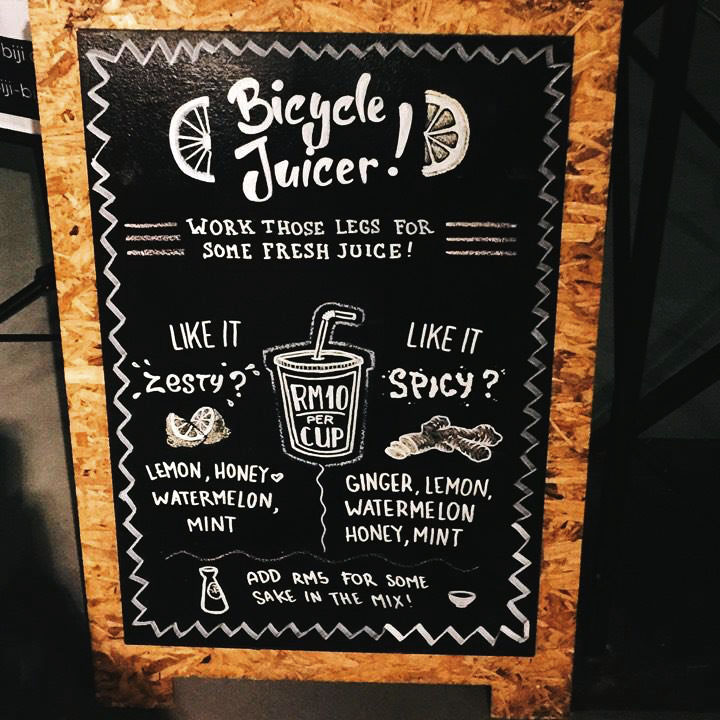 biji
iji-b
Bicycle
Juicer!
WORK THOSE LEGS FOR
SOME FRESH JUICE!
LIKE IT
ZESTY?
LEMON, HONEY
WATERMELON,
MINT
RM10
PER
CUP
LIKE IT
SPICY?
GINGER, LEMON,
WATERMELON
HONEY, MINT
ADD RM5 FOR SOME
SAKE IN THE MIX!